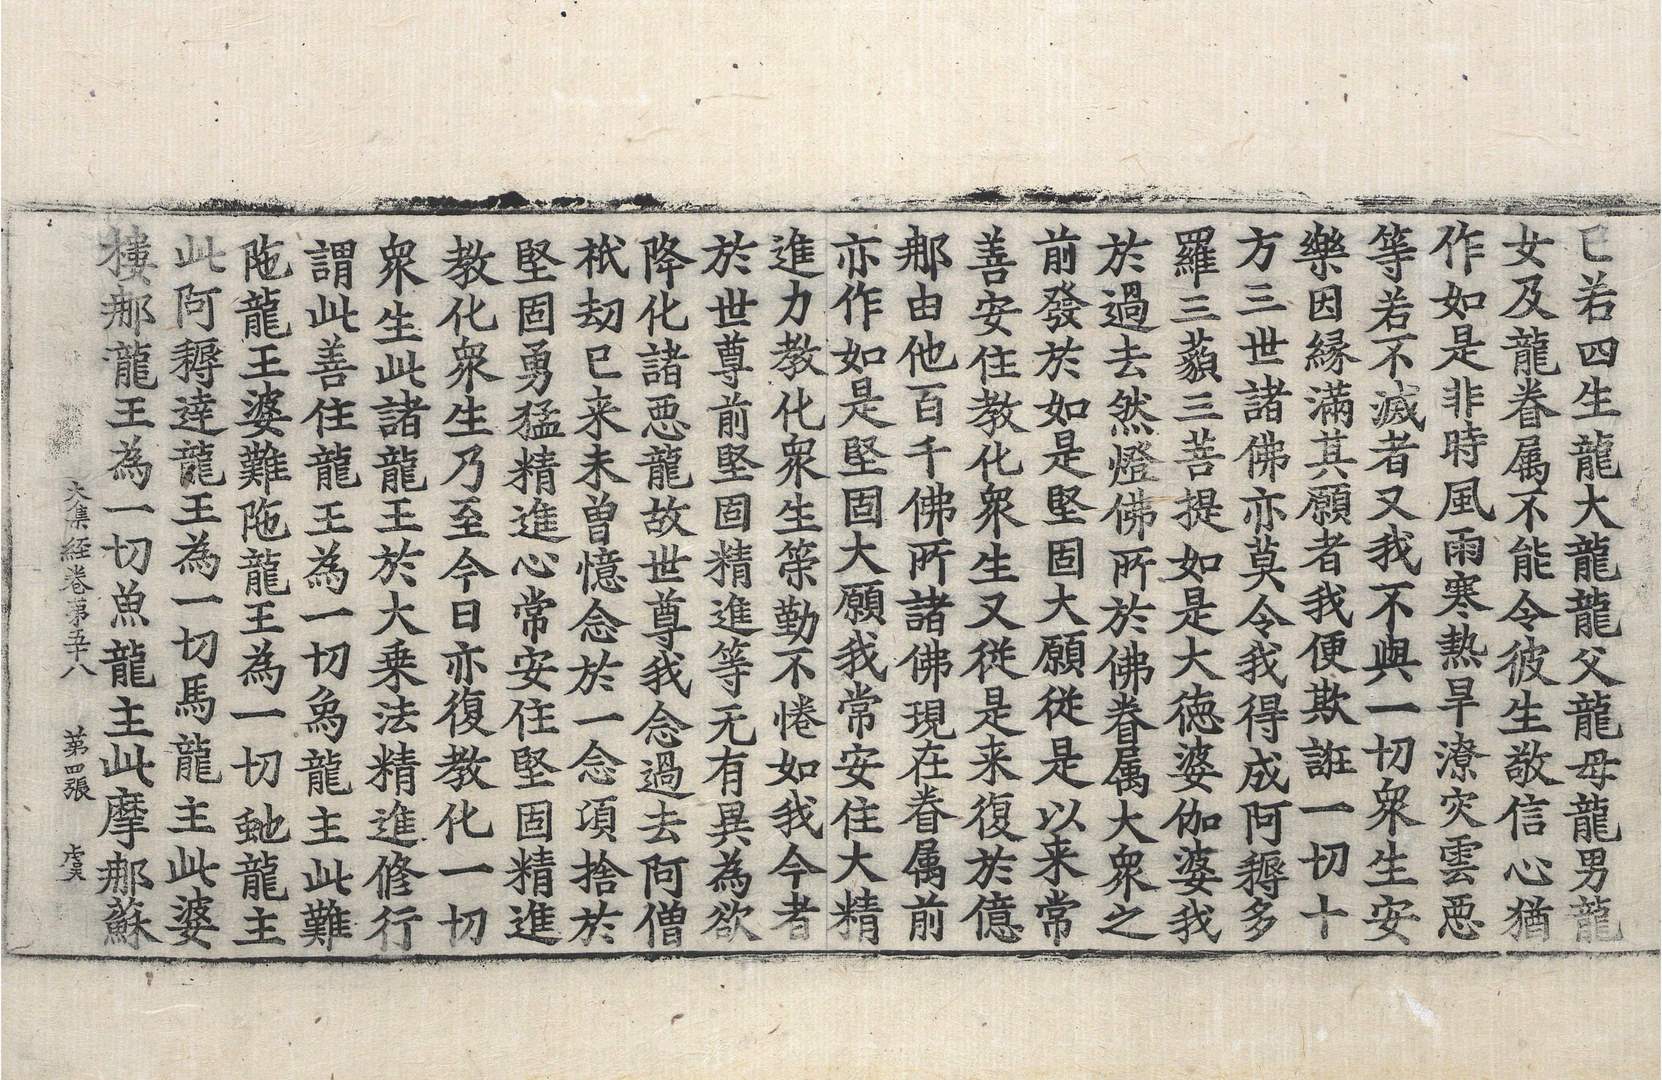 已若四生龍大龍龍父龍母龍男龍
女及龍眷属不能令彼生敬信心猶
作如是非時風雨寒熱旱潦灾雲惡
等若不滅者又我不與一切衆生安
樂因緣滿其願者我便欺誑一切十
方三世諸佛亦莫令我得成阿耨多
羅三藐三菩提如是大徳婆伽婆我
於過去然燈佛所於佛眷属大衆之
前發於如是堅固大願従是以来常
善安住教化衆生又従是来復於億
那由他百千佛所諸佛現在眷属前
亦作如是堅固大願我常安住大精
進力教化衆生策勤不惓如我今者
於世尊前堅固精進等无有異為欲
降化諸惡龍故世尊我念過去阿僧
祇劫已来未曾憶念於一念項捨於
堅固勇猛精進心常安住堅固精進
教化衆生乃至今日亦復教化一切
衆生此諸龍王於大乗法精進修行
謂此善住龍王為一切象龍主此難
陁龍王婆難陁龍王為一切虵龍主
此阿耨達龍王為一切馬龍主此婆
樓那龍王為一切魚龍主此摩那蘇
大集経巻第五十八　第四張　虞